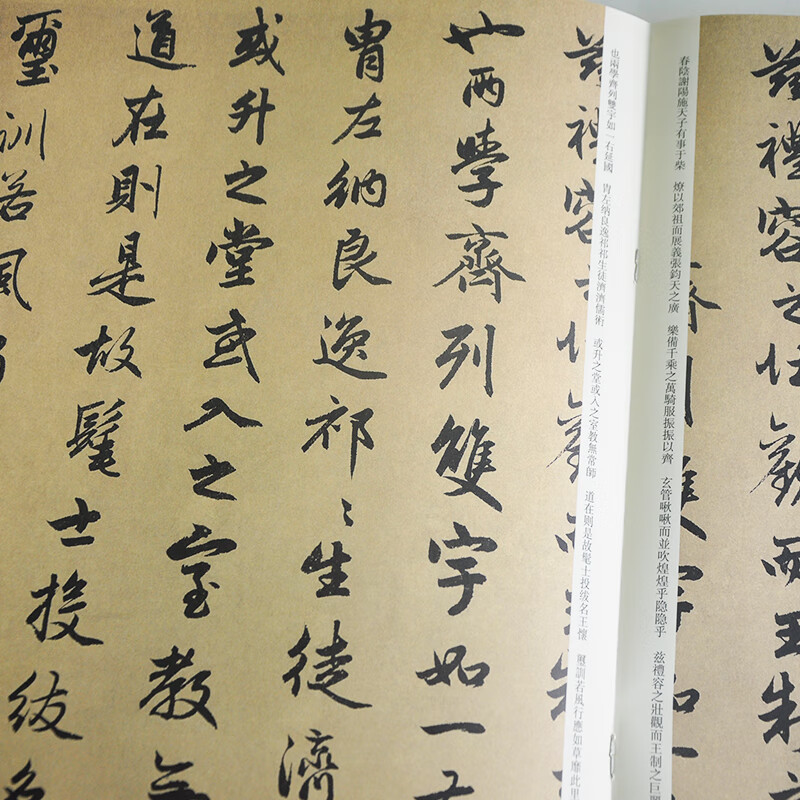 茲禮容之壯觀而王制
春陰謝陽施天子有事于柴 燎以郊祖而展義張鈞天之廣 樂備千乘之萬騎服振振以齊 玄管啾啾而並吹煌煌乎隐隐乎 兹禮容之壯觀而王制之巨
也兩學齊列雙宇如一右延國 胄左纳良逸祁祁生徒濟濟儒術 或升之堂或入之室教無常師 道在則是故髦士投紱名王懷 璽訓若風行應如草靡此里
茲禮容之壯觀而
也兩學齊列雙宇如一
胄左納良逸祁〻生徒濟
或升之堂或入之室教无
道在則是故髦士投紱名
璽訓若風